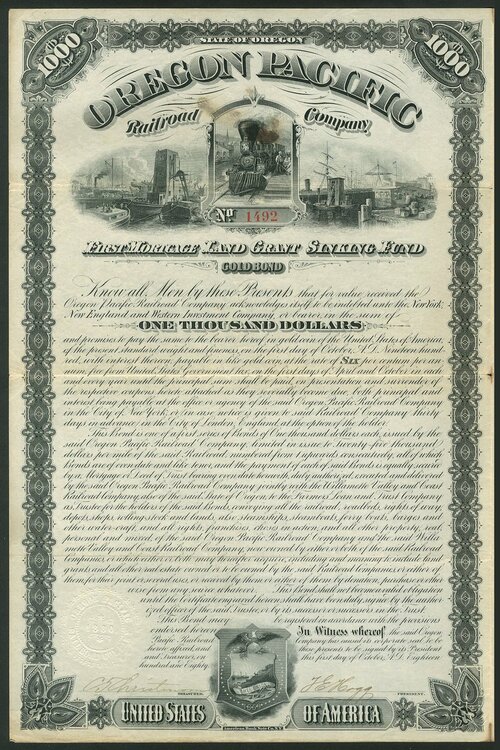 1000
STATE OF OREGON
1000
OREGON PACIFIC
Railroad Company
No. 1492
FIRST MORTGAGE LAND GRANT SINKING FUND
GOLD BOND
Know all Men by these Presents that for value received the
Oregon Pacific Railroad Company, acknowledges itself to be indebted unto the New York,
New England and Western Investment Company, or bearer, in the sum of
ONE THOUSAND DOLLARS
and promises to pay the same to the bearer hereof in gold coin of the United States of America,
of the present standard weight and fineness, on the first day of October A.D. Nineteen hund-
red, with interest thereon, payable in like gold coin, at the rate of SIX per centum per an-
num free from United States Government tax, on the first days of April and October in each
and every year until the principal sum shall be paid, on presentation and surrender of
the respective coupons hereto attached as they severally become due, both principal and
interest being payable at the office or agency of the said Oregon Pacific Railroad Company
in the City of New York, or in case notice is given to said Railroad Company thirty
days in advance, in the City of London, England, at the option of the holder.
This Bond is one of a series of Bonds of One thousand dollars each, issued by the
said Oregon Pacific Railroad Company, limited in issue to Twenty five thousand
dollars per mile of the said Railroad, numbered from 1 upwards consecutively, all of which
Bonds are of even date and like tenor, and the payment of each of said Bonds is equally secured
by a Mortgage or Deed of Trust bearing even date herewith, duly authorized, executed and delivered
by the said Oregon Pacific Railroad Company jointly with the Willamette Valley and Coast
Railroad Company, also of the said State of Oregon, to the Farmers Loan and Trust Company
as Trustee for the holders of the said Bonds, conveying all the railroad, roadbeds, rights of way,
depots, shops, rolling stock and lands, also steamships, steamboats, ferry boats, barges and
other water craft, and all rights, franchises, shares in and all other property, real,
personal and mixed, of the said Oregon Pacific Railroad Company and the said Willa-
mette Valley and Coast Railroad Company, now owned by either or both of the said Railroad
Companies, or which either or both may hereafter acquire,
grants and all other real estate owned or to be owned by the said Railroad Companies or either of
them for their joint or several uses, or received by them or either of them by donation, purchase or other-
wise from any source whatever. This Bond shall not become a valid obligation
until the Certificate endorsed hereon shall have been duly signed by the author-
ized officer of the said Trustee, or by its successor or successors in the Trust.
This Bond may be registered in accordance with the provisions
endorsed hereon. In Witness whereof, the said Oregon
Pacific Railroad Company has caused its corporate seal to be
hereto affixed, and these presents to be signed by its President
and Treasurer, on this first day of October, A.D. Eighteen
hundred and Eighty.
TREASURER.
T E Hogg
PRESIDENT.
UNITED STATES OF AMERICA
American Bank Note Co. N.Y.